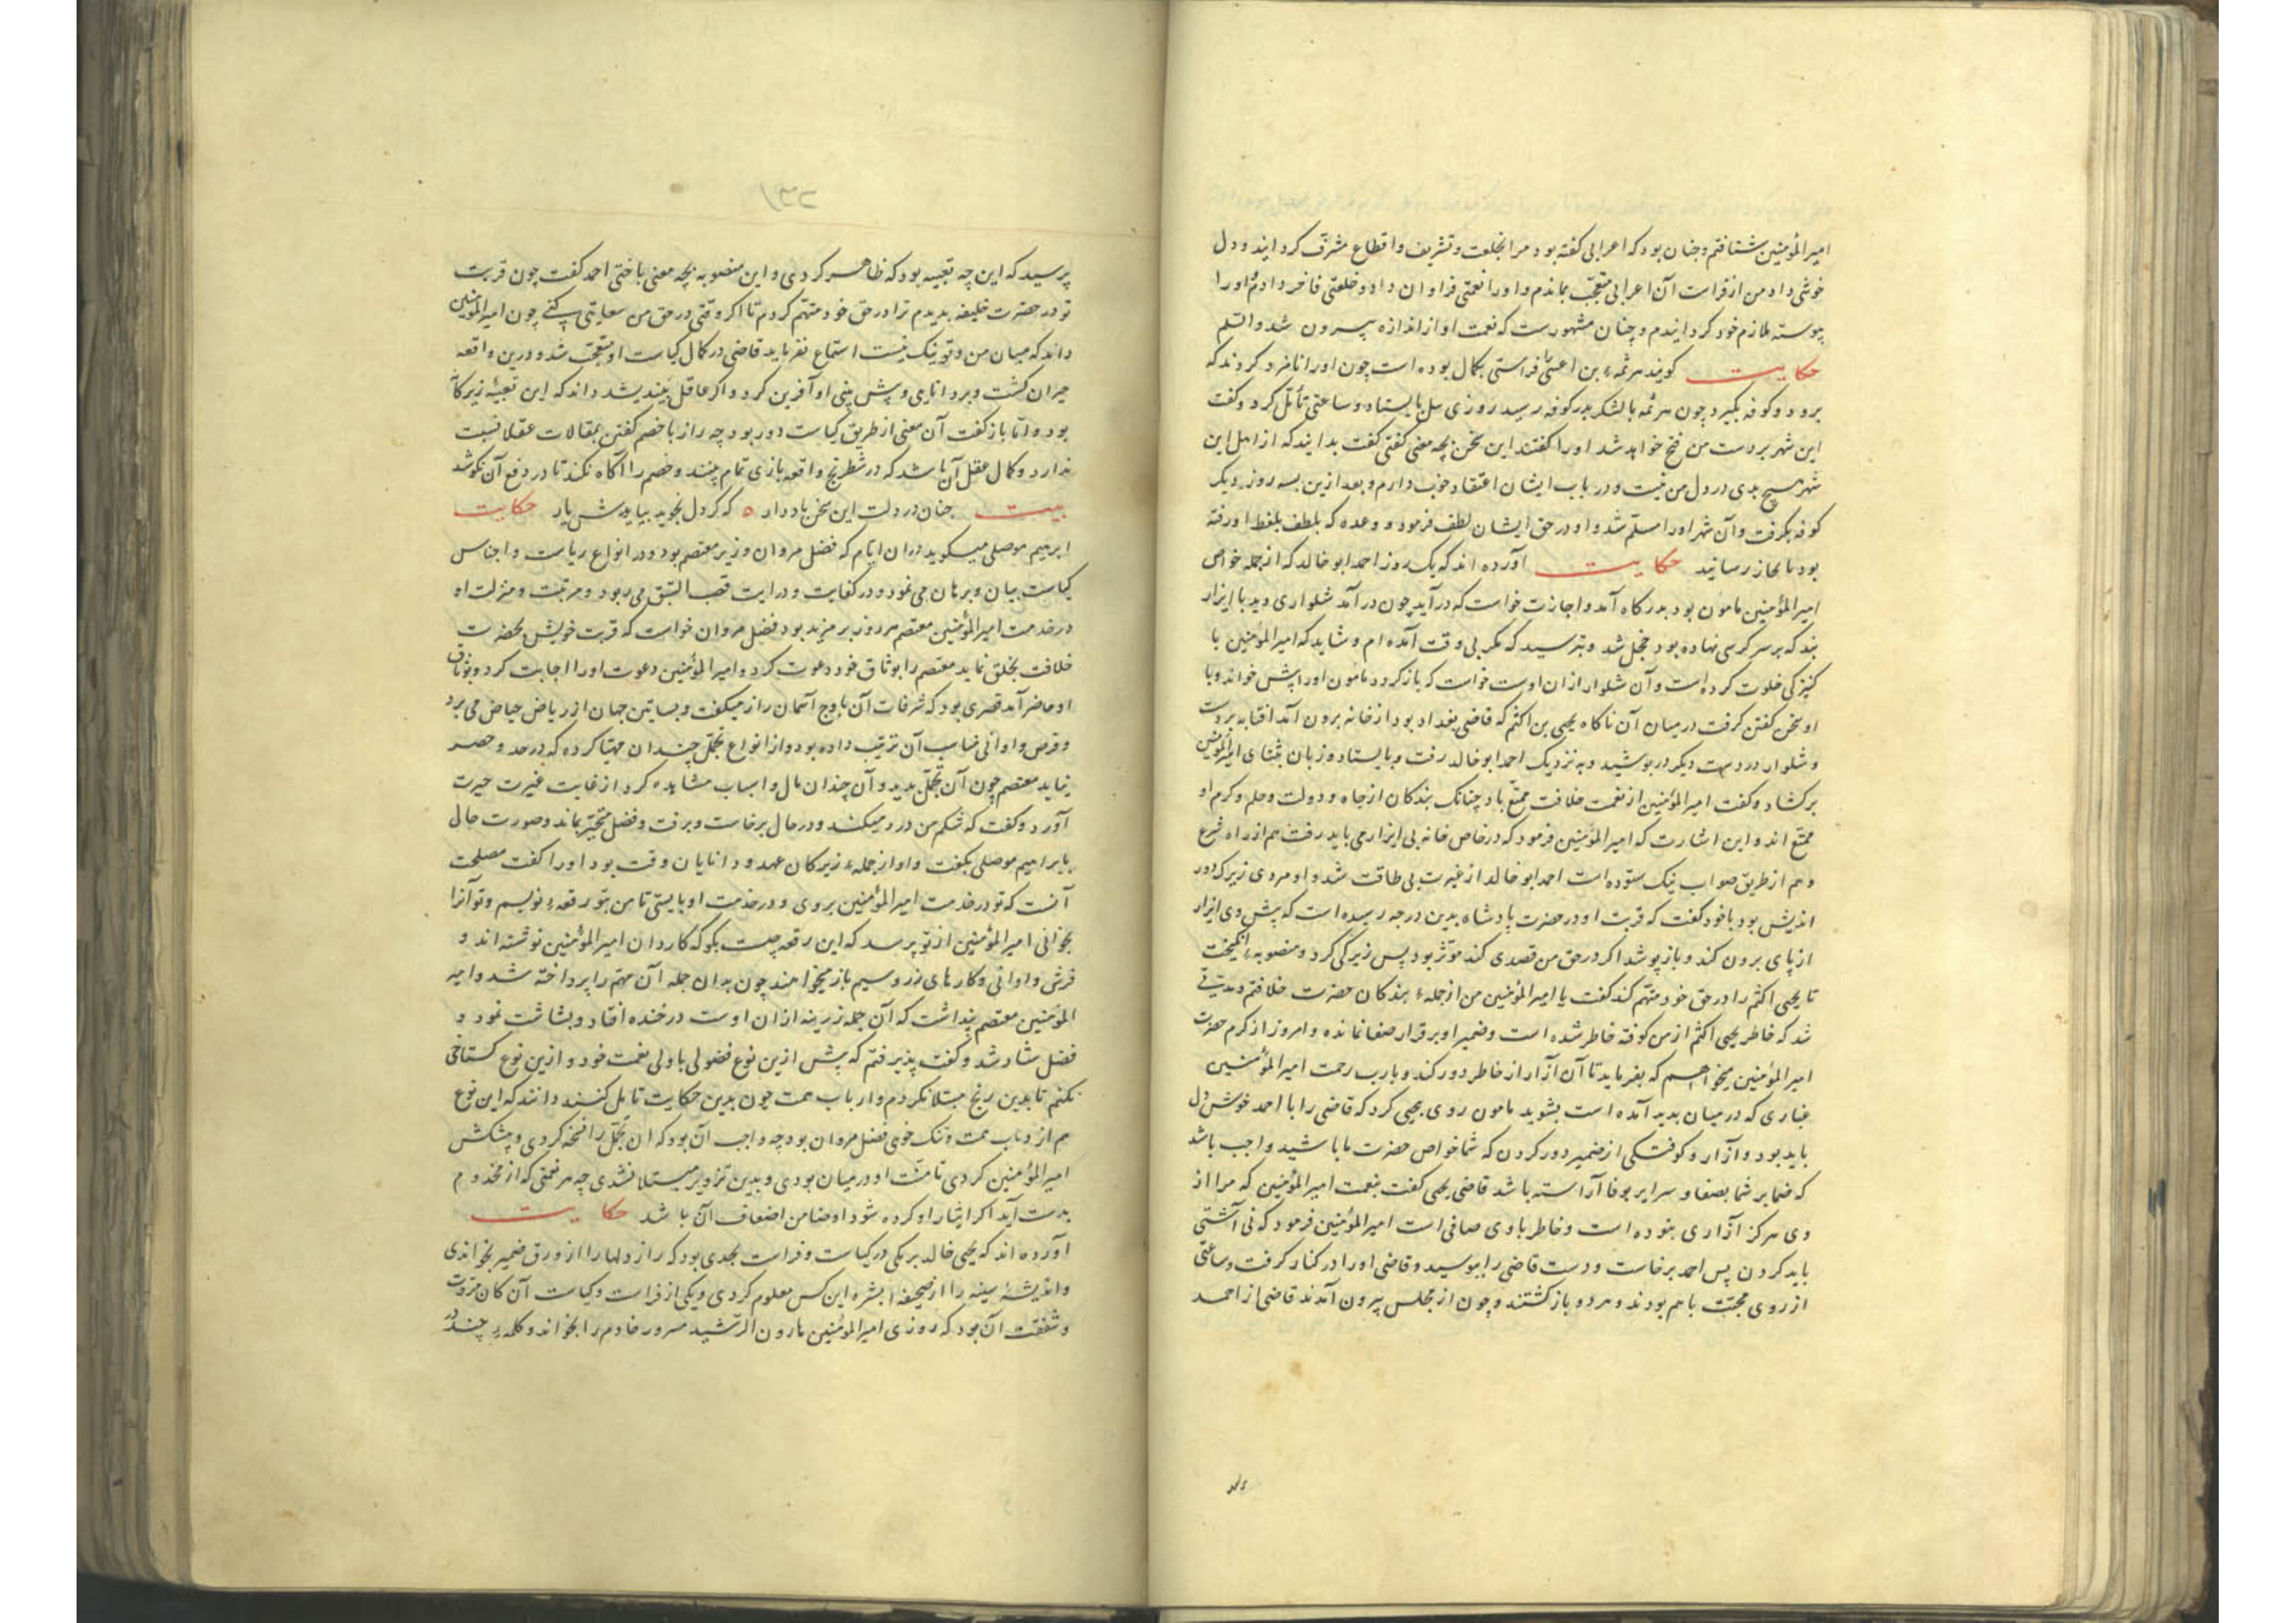 امیرالمؤمنین شتافتم و چنان بود که اعرابی گفته بود مرا بخلعت و تشریف و اقطاع مشرّف گردانید و دل
خوشی داد من از فراست آن اعرابی متعجّب بماندم و او را نعمتی فراوان داد و خلعتی فاخر دادم و او را
پیوسته ملازم خود گردانیدم و چنان مشهورست که نعمت او از اندازه بیرون شد والسّلم
حکایت گویند هرثمه بن اعین را فراستی بکمال بوده است چون او را نامزد کردند که
برود و کوفه بگیرد چون هرثمه با لشکر بدر کوفه رسید روزی بایستاد و ساعتی تأمّل کرد و گفت
این شهر بر دست من فتح خواهد شد او را گفتند این سخن بچه معنی گفتی گفت بدانید که از اهل این
شهر هیچ بدی در دل من نیست و در باب ایشان اعتقاد خوب دارم و بعد ازین بسه روز دیگر
کوفه بگرفت و آن شهر او را مسلّم شد و او در حق ایشان لطف فرمود و وعده که بلطف بلفظ او رفته
بود بانجاز رسانید حکایت آورده اند که یک روز احمد ابوخالد که از جمله خواص
امیرالمؤمنین مامون بود بدرگاه آمد و اجازت خواست که درآید چون درآمد شلواری دید با ایزار
بند که بر سر کرسی نهاده بود خجل شد و بترسید که مگر بی وقت آمده ام و شاید که امیرالمؤمنین با
کنیزکی خلوت کرده است و آن شلوار ازان اوست خواست که بازگردد مامون او را پیش خواند و با
او سخن گفتن گرفت در میان آن ناگاه یحیی بن اکثم که قاضی بغداد بود از خانه برون آمد افتابه بردست
و شلوار در دست دیگر درپوشید و به نزدیک احمد ابوخالد رفت و بایستاد و زبان بثنای امیرالمؤمنین
برگشاد و گفت امیرالمؤمنین از نعمت خلافت ممتّع باد چنانک بندگان از جاه و دولت و حلم و کرم او
ممتّع اند و این اشارت که امیرالمؤمنین فرمود که در خاص خانه بی ایزار می باید رفت هم از راه شرع
و هم از طریق صواب نیک ستوده است احمد ابوخالد از غیرت بی طاقت شد و او مردی زیرک و دور
اندیش بود با خود گفت که قربت او در حضرت پادشاه بدین درجه رسیده است که پیش وی ایزار
از پای برون کند و باز پوشد اگر در حق من قصدی کند مؤثر بود پس زیرکی کرد و منصوبهء انگیخت
تا یحیی اکثم را در حق خود متّهم کند گفت یا امیرالمؤمنین من از جملهء بندگان حضرت خلافتم و مدّتی
شد که خاطر یحیی اکثم از من کوفته خاطر شده است و ضمیر او بر قرار صفا نمانده و امروز از کرم حضرت
امیرالمؤمنین میخواهم که بفرماید تا آن آزار از خاطر دور کند و بآب رحمت امیرالمؤمنین
غباری که در میان بدید آمده است بشوید مامون روی بیحیی کرد که قاضی را با احمد خوش دل
باید بود و آزار و کوفتگی از ضمیر دور کردن که شما خواص حضرت ما باشید و واجب باشد
که ضمایر شما بصفا و سرایر بوفا آراسته باشد قاضی یحیی گفت بنعمت امیرالمؤمنین که مرا از
وی هرگز آزاری نبوده است و خاطر با وی صافی است امیرالمؤمنین فرمود که نی آشتی
باید کردن پس احمد برخاست و دست قاضی را ببوسید و قاضی او را در کنار گرفت و ساعتی
از روی محبّت باهم بودند و هر دو بازگشتند و چون از مجلس بیرون آمدند قاضی از احمد
پرسید که این چه تعبیه بود که ظاهر کردی و این منصوبه بچه معنی باختی احمد گفت چون قربت
تو در حضرت خلیفه بدیدم ترا در حق خود متّهم کردم تا اگر وقتی در حق من سعایتی کنی چون امیرالمؤمنین
داند که میان من و تو نیک نیست استماع نفرماید قاضی در کمال کیاست او متعجّب شد و درین واقعه
حیران گشت و بر دانایی و پیش بینی او آفرین کرد و اگر عاقل بیندیشد داند که این تعبیهٔ زیرکانه
بود و امّا بازگفت آن معنی از طریق کیاست دور بود چه راز با خصم گفتن بمقالات عقلا نسبت
ندارد و کمال عقل آن باشد که در شطرنج واقعه بازی تمام بیند و خصم را آگاه نکند تا در دفع آن نکوشد
بیت چنان در دلت این سخن باد دار ه که گر دل بجوید بیایدش یار حکایت
ابرهیم موصلی میگوید دران ایّام که فضل مروان وزیر معتصم بود و در انواع ریاست و اجناس
کیاست بیان و برهان می نمود و در کفایت و درایت قصب السّبق می ربود و مرتبت و منزلت او
در خدمت امیرالمؤمنین معتصم هر روز بر مزید بود فضل مروان خواست که قربت خویش بحضرت
خلافت بخلق نماید معتصم را بوثاق خود دعوت کرد و امیرالمؤمنین دعوت او را اجابت کرد و بوثاق
او حاضر آمد قصری بود که شرفات آن با اوج آسمان راز میگفت و بساتین جهان از ریاض حیاض می برد
و فرش و اوانی مناسب آن ترتیب داده بود و از انواع تجمّل چندان مهیّا کرده که در حد و حصر
نیاید معتصم چون آن تجمّل بدید و آن چندان مال و اسباب مشاهده کرد از غایت غیرت حیرت
آورد و گفت که شکم من درد میکند و در حال برخاست و برفت و فضل متحیّر بماند و صورت حال
با ابراهیم موصلی بگفت و او از جملهء زیرکان عهد و دانایان وقت بود او را گفت مصلحت
آنست که تو در خدمت امیرالمؤمنین بروی و در خدمت او بایستی تا من بتو رقعهء نویسم و تو آنرا
بخوانی امیرالمؤمنین از تو پرسد که این رقعه چیست بگو که کارداران امیرالمؤمنین نوشته اند و
فرش و اوانی و کارهای زر و سیم باز میخواهند چون بدان جمله آن مهّم را پرداخته شد و امیر
المؤمنین معتصم پنداشت که آن جمله زرینه ازان اوست در خنده افتاد و بشاشت نمود و
فضل شاد شد و گفت پذیرفتم که پیش ازین نوع فضولی با ولی نعمت خود و ازین نوع گستاخی
نکنم تا بدین رنج مبتلا نگردم و ارباب همت چون بدین حکایت تامل کنند دانند که این نوع
هم از همت و تنک خویی فضل مروان بود چه واجب آن بود که آن تجمّل را کردی و پیشکش
امیرالمؤمنین کردی تا منّت او در میان بودی و بدین تزویر مبتلا نشدی چه هر نعمتی که از مخدوم
بدست آید اگر ایثار او کرده شود او ضامن اضعاف آن باشد حکایت
آورده اند که یحیی خالد برمکی در کیاست و فراست بحدی بود که راز دلها را از ورق ضمیر بخواندی
و اندیشهٔ سینه را از صحیفهٔ بشره این کس معلوم کردی و یکی از فراست و کیاست آن کان مروّت
و شفقت آن بود که روزی امیرالمؤمنین هارون الرّشید مسرور خادم را بخواند و کلمهء چند